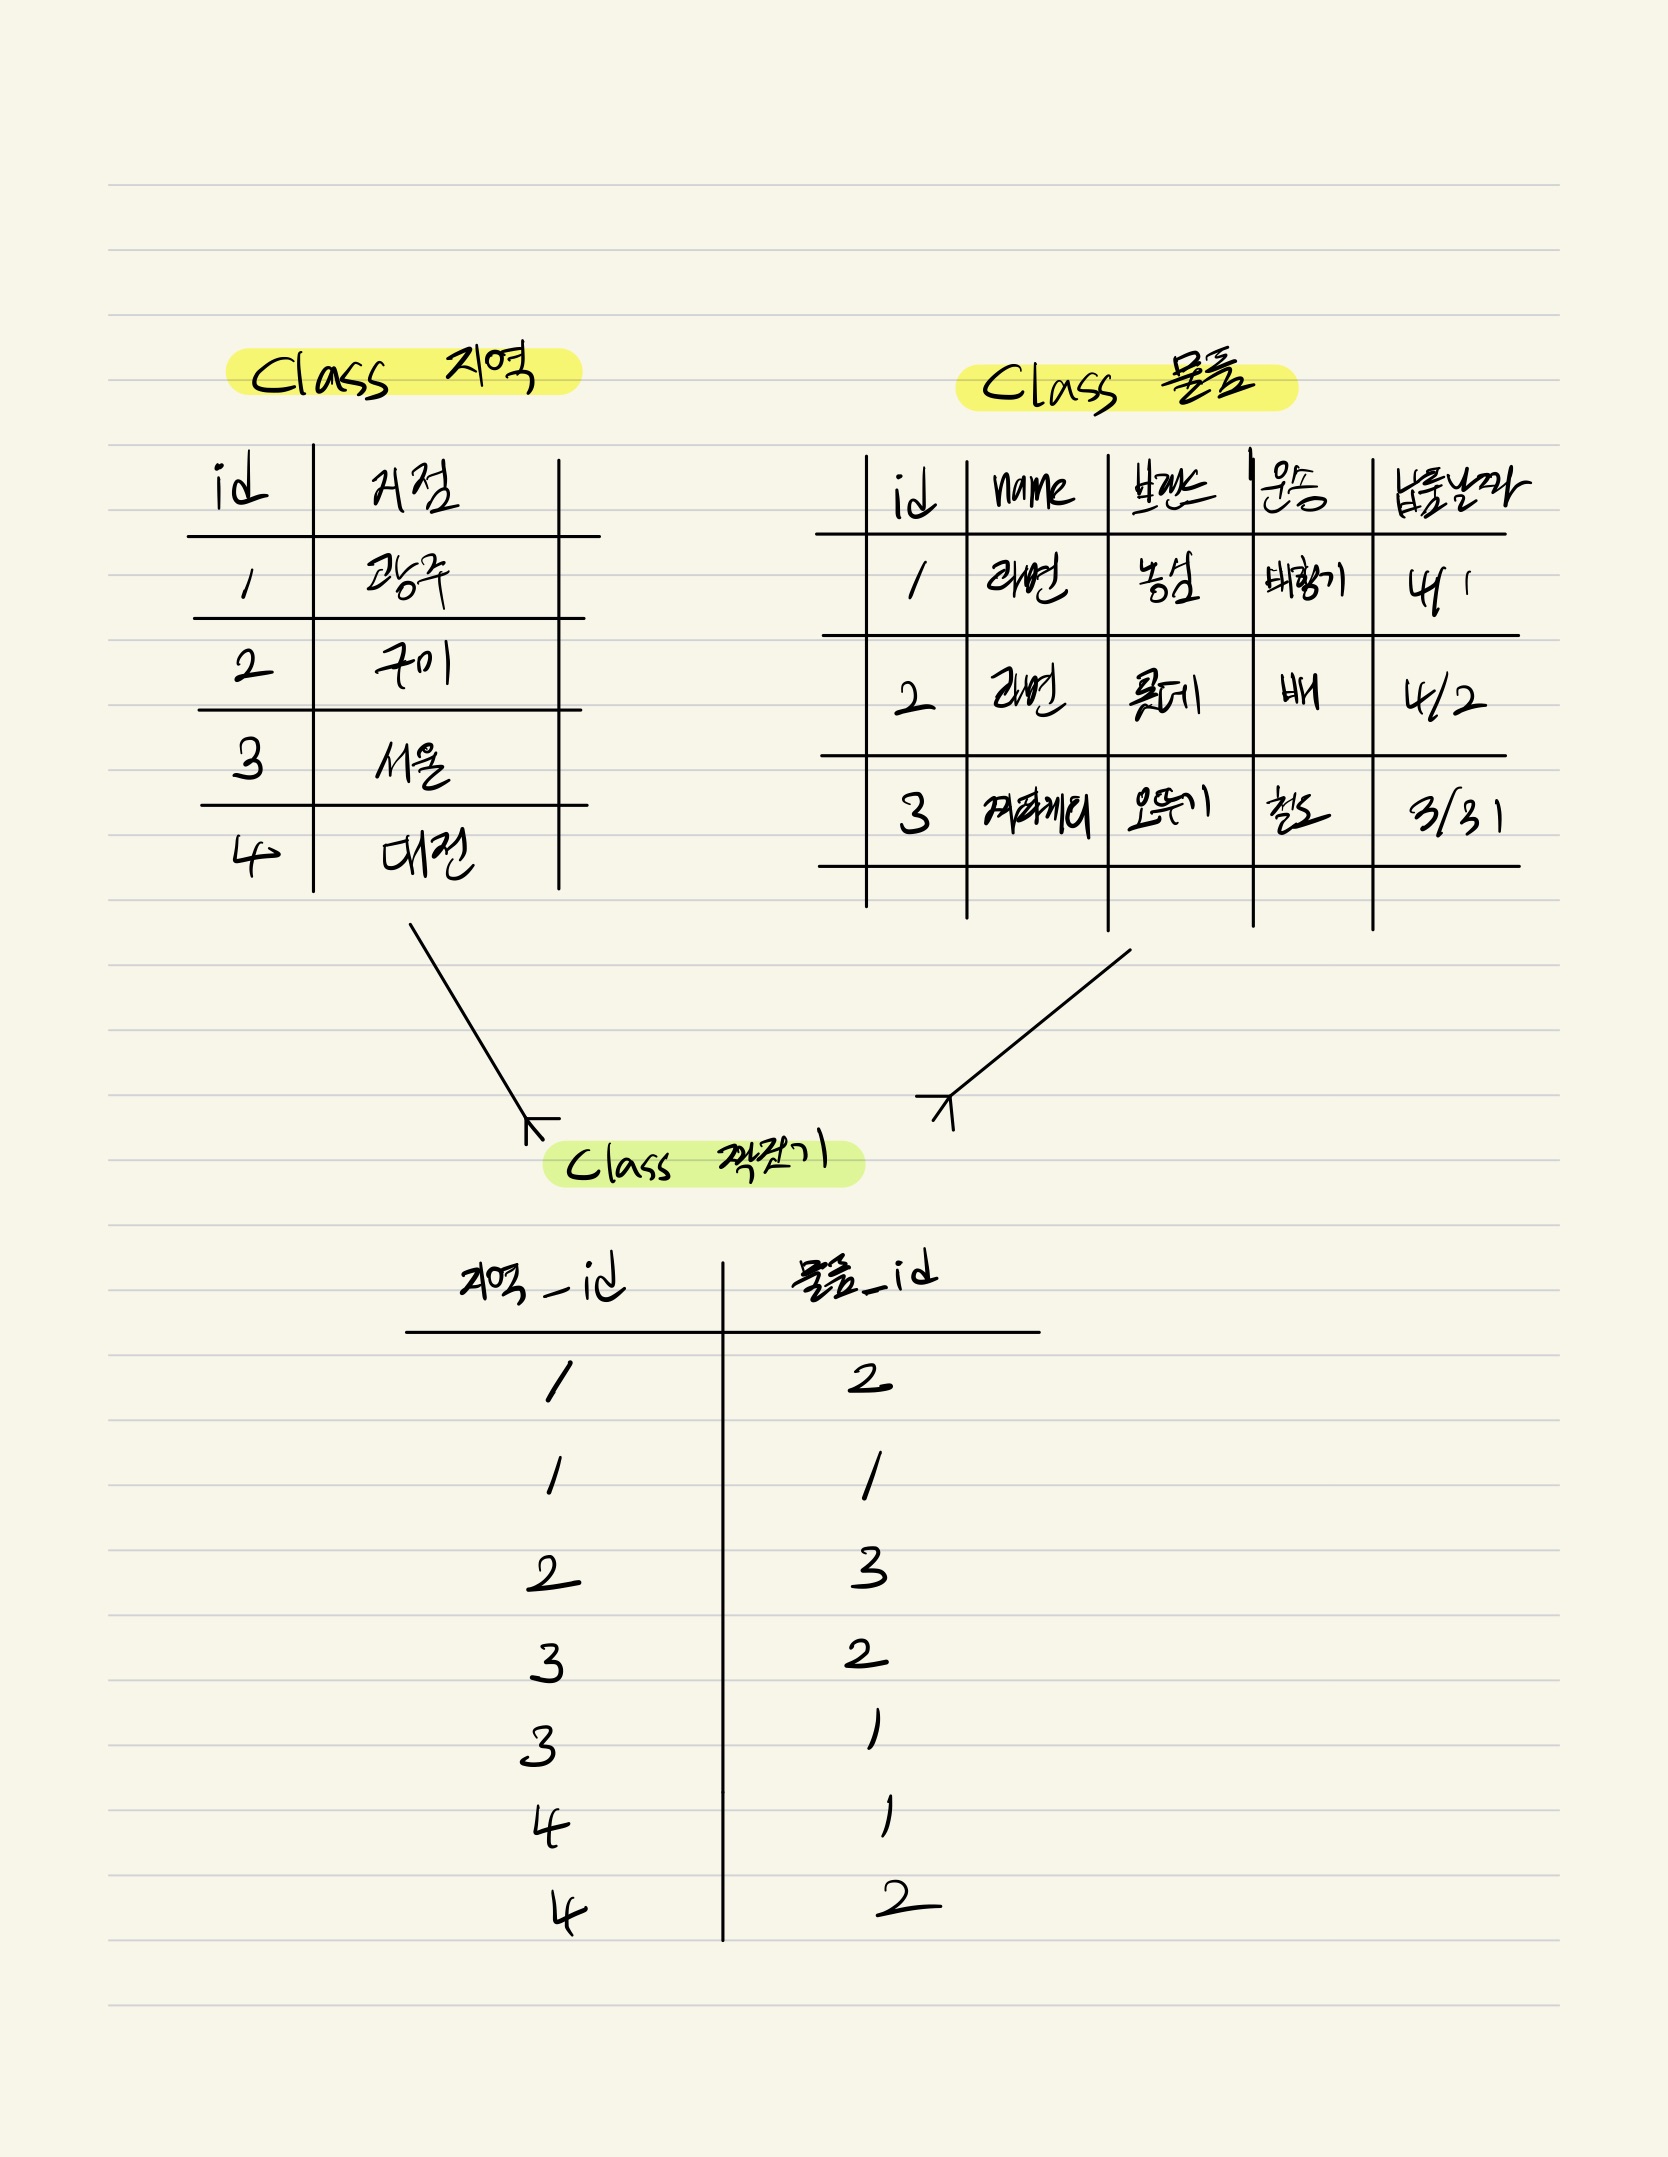 Class 지역
id 거점
1 광주
2 구미
3 서울
4 대전
Class 물품
id name 브랜드 운송 납품날짜
1 라면 농심 비행기 4/1
2 라면 롯데 배 4/2
3 오뚜기 철도 3/31
Class 짝짓기
지역_id 물품_id
1 2
1 1
2 3
3 2
3 1
4 1
4 2